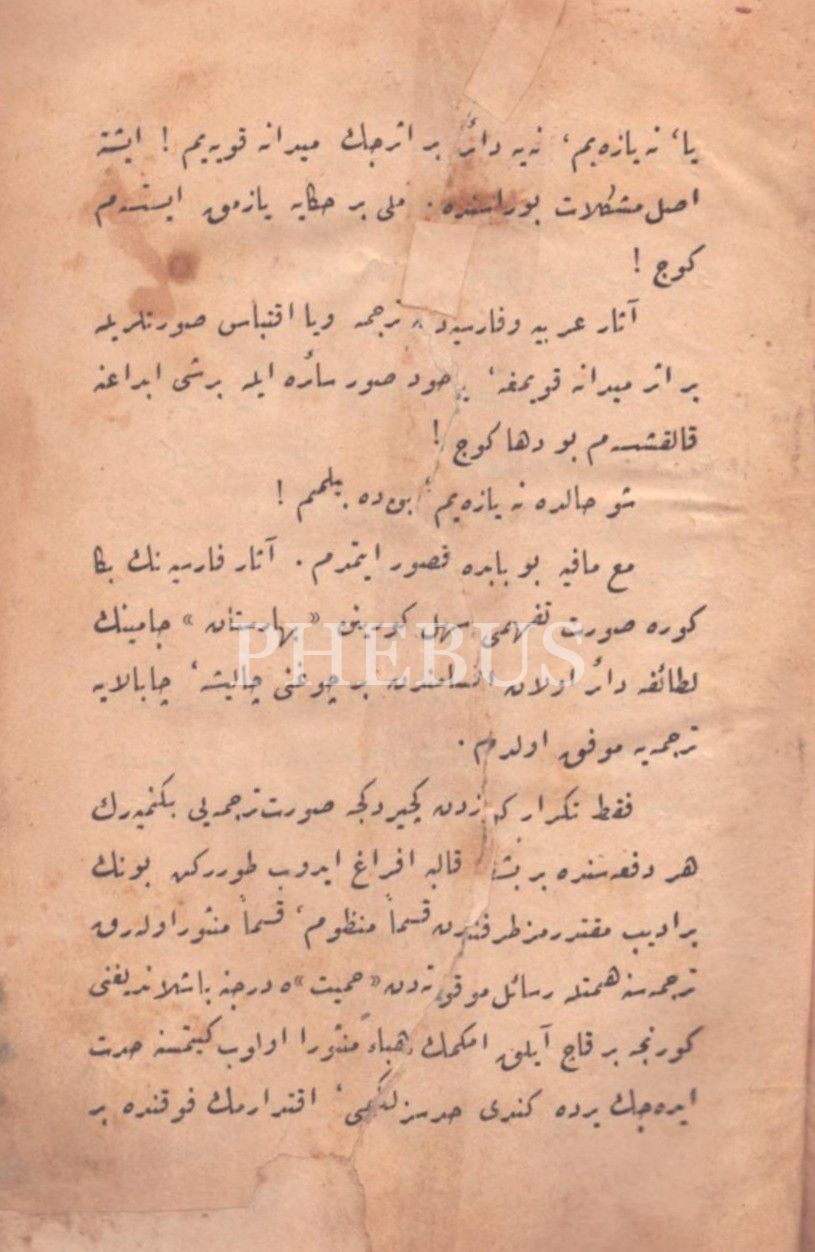 یا، نه یازه‌یم، نه‌یه دائر بر اثرجك میدانه قویه‌یم ! ایشته
اصل مشكلات بوراسنده . ملی بر حكایه یازمق ایستسه‌م
كوج !
آثار عربیه وفارسیه‌دن ترجمه ویا اقتباس صورتلریله
بر اثر میدانه قویمغه، یاخود صور سائره ایله برشی ابداعنه
قالقشسه‌م بو دها كوج !
شو حالده نه یازه‌یم، بن ده بیلمم !
مع مافیه بو بابده قصور ایتمدم . آثار فارسیه نك بكا
كوره صورت تفهمی سهل كورینن « بهارستان » جامینك
لطائفه دائر اولان اقسامندن بر چوغنی چالیشه، چابالایه
ترجمه‌یه موفق اولدم .
فقط تكرار كوزدن كچیردكجه صورت ترجمه‌یی بكنمیه‌رك
هر دفعه‌سنده بر بشقه قالبه افراغ ایدوب طوررکن بونك
بر ادیب مقتدرمز طرفندن قسماً منظوم، قسماً منثور اوله‌رق
ترجمه‌سنه همتله رسائل موقوته‌دن « حمیت » ه درجنه باشلاندیغنی
كورنجه بر قاچ آیلق امكمك هباءً منثورا اولوب كیتمسنه حدت
ایده‌جك یرده كندی حدسزلكمی، اقتدارمك فوقنده بر
PHEBUS